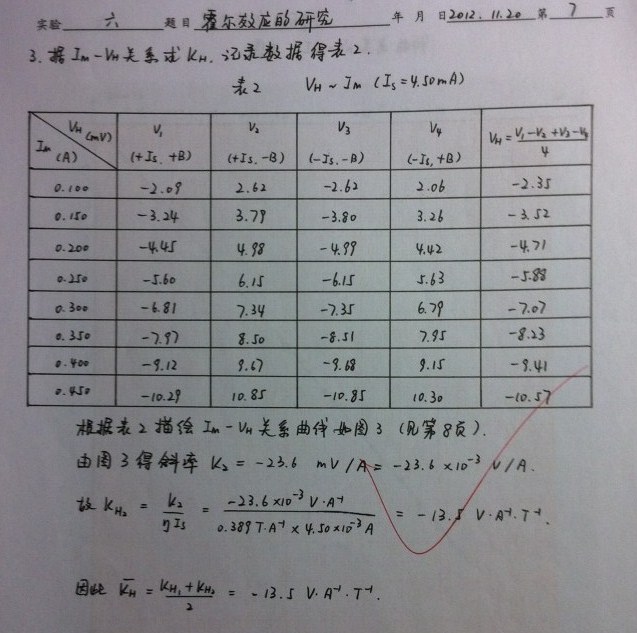 实验 六 题目 霍尔效应的研究 年 月 日 2012.11.20 第 7 页
3.据 Im-VH关系求 KH.记录数据得表2.
表2 VH~Im (Is=4.50mA)
VH (mV) Im (A) V1 (+Is. +B) V2 (+Is. -B) V3 (-Is. -B) V4 (-Is, +B) VH = (V1-V2+V3-V4)/4
0.100 -2.09 2.62 -2.62 2.06 -2.35
0.150 -3.24 3.79 -3.80 3.26 -3.52
0.200 -4.45 4.98 -4.99 4.42 -4.71
0.250 -5.60 6.15 -6.15 5.63 -5.88
0.300 -6.81 7.34 -7.35 6.79 -7.07
0.350 -7.97 8.50 -8.51 7.95 -8.23
0.400 -9.12 9.67 -9.68 9.15 -9.41
0.450 -10.29 10.85 -10.85 10.30 -10.57
根据表2描绘 Im-VH关系曲线如图3 (见第8页).
由图3得斜率 K2 = -23.6 mV/A = -23.6×10⁻³ V/A.
故 KH2 = K2/(ηIs) = (-23.6×10⁻³ V·A⁻¹)/(0.389 T·A⁻¹ × 4.50×10⁻³ A) = -13.5 V·A⁻¹·T⁻¹.
因此 K̄H = (KH1+KH2)/2 = -13.5 V·A⁻¹·T⁻¹.